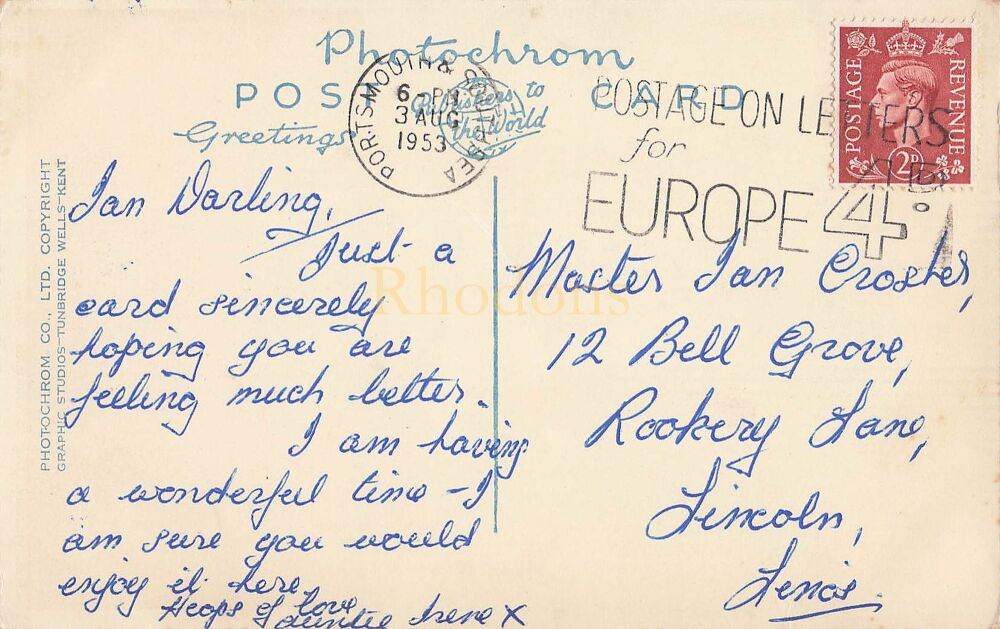 Photochrom
POST CARD
Publishers to
the World
Greetings
PORTSMOUTH & SOUTHSEA
6 - PM
3 AUG
1953
POSTAGE ON LETTERS
for
EUROPE 4D.
POSTAGE REVENUE
2D
PHOTOCHROM CO., LTD. COPYRIGHT
GRAPHIC STUDIOS-TUNBRIDGE WELLS-KENT
Ian Darling,
Just a
card sincerely
hoping you are
feeling much better.
I am having
a wonderful time - I
am sure you would
enjoy it here.
Heaps of love
Auntie Irene X
Master Ian
12 Bell Grove,
Rookery Lane,
Lincoln,
Lincs.
Rhodons